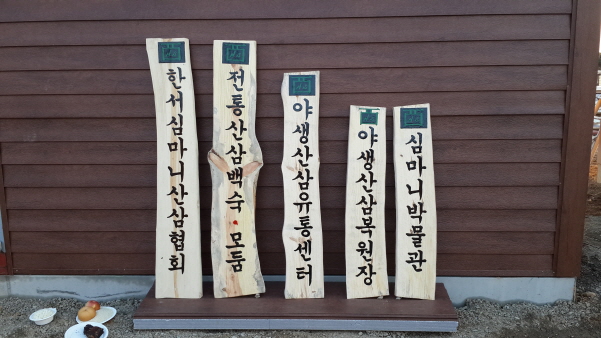 한서심마니산삼협회
전통산삼백숙·모둠
야생산삼유통센터
야생산삼복원장
심마니박물관